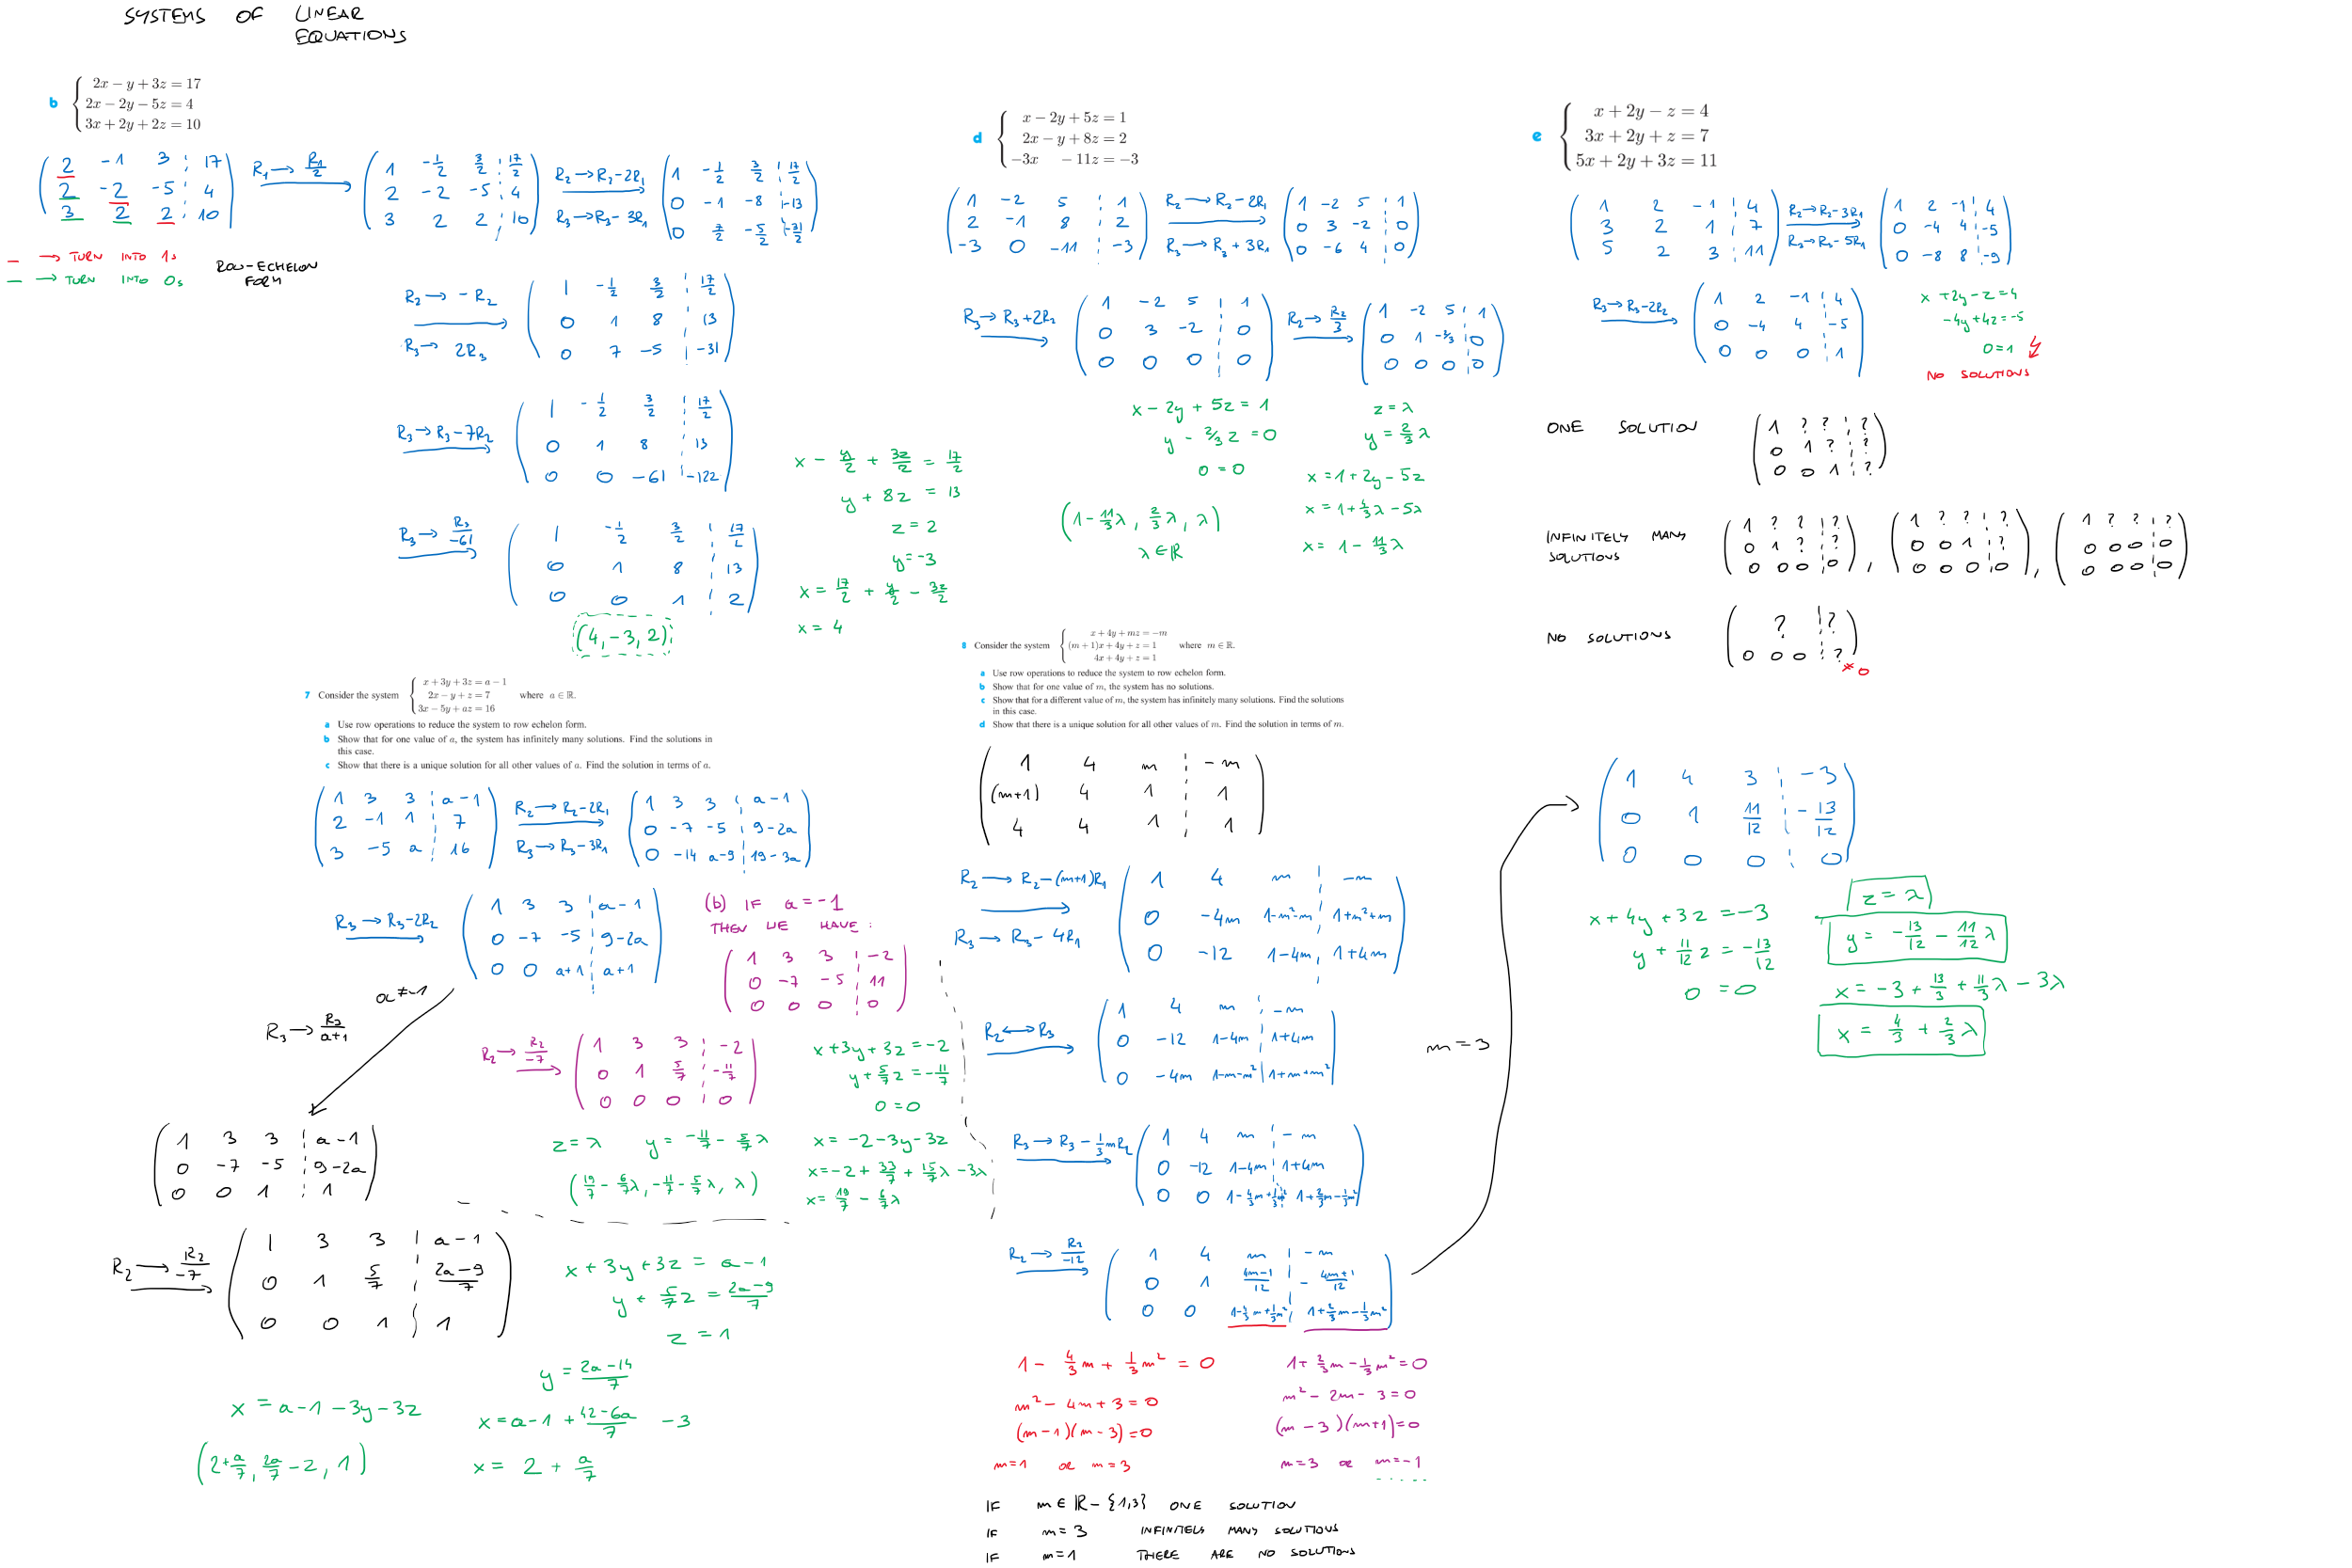 SYSTEMS OF LINEAR
EQUATIONS
b { 2x − y + 3z = 17
2x − 2y − 5z = 4
3x + 2y + 2z = 10
( 2 -1 3 ¦ 17 )
( 2 -2 -5 ¦ 4 )
( 3 2 2 ¦ 10 )
R₁ → R₁/2
( 1 -1/2 3/2 ¦ 17/2 )
( 2 -2 -5 ¦ 4 )
( 3 2 2 ¦ 10 )
R₂ → R₂ - 2R₁
R₃ → R₃ - 3R₁
( 1 -1/2 3/2 ¦ 17/2 )
( 0 -1 -8 ¦ -13 )
( 0 7/2 -5/2 ¦ -31/2 )
— → TURN INTO 1s
— → TURN INTO 0s
ROW-ECHELON
FORM
R₂ → -R₂
R₃ → 2R₃
( 1 -1/2 3/2 ¦ 17/2 )
( 0 1 8 ¦ 13 )
( 0 7 -5 ¦ -31 )
R₃ → R₃ - 7R₂
( 1 -1/2 3/2 ¦ 17/2 )
( 0 1 8 ¦ 13 )
( 0 0 -61 ¦ -122 )
R₃ → R₃/-61
( 1 -1/2 3/2 ¦ 17/2 )
( 0 1 8 ¦ 13 )
( 0 0 1 ¦ 2 )
x - y/2 + 3z/2 = 17/2
y + 8z = 13
z = 2
y = -3
x = 17/2 + y/2 - 3z/2
x = 4
(4, -3, 2)
d { x − 2y + 5z = 1
2x − y + 8z = 2
−3x − 11z = −3
( 1 -2 5 ¦ 1 )
( 2 -1 8 ¦ 2 )
( -3 0 -11 ¦ -3 )
R₂ → R₂ - 2R₁
R₃ → R₃ + 3R₁
( 1 -2 5 ¦ 1 )
( 0 3 -2 ¦ 0 )
( 0 -6 4 ¦ 0 )
R₃ → R₃ + 2R₂
( 1 -2 5 ¦ 1 )
( 0 3 -2 ¦ 0 )
( 0 0 0 ¦ 0 )
R₂ → R₂/3
( 1 -2 5 ¦ 1 )
( 0 1 -2/3 ¦ 0 )
( 0 0 0 ¦ 0 )
x - 2y + 5z = 1
y - 2/3 z = 0
0 = 0
z = λ
y = 2/3 λ
x = 1 + 2y - 5z
x = 1 + 4/3 λ - 5λ
x = 1 - 11/3 λ
(1 - 11/3 λ, 2/3 λ, λ)
λ ∈ ℝ
e { x + 2y − z = 4
3x + 2y + z = 7
5x + 2y + 3z = 11
( 1 2 -1 ¦ 4 )
( 3 2 1 ¦ 7 )
( 5 2 3 ¦ 11 )
R₂ → R₂ - 3R₁
R₃ → R₃ - 5R₁
( 1 2 -1 ¦ 4 )
( 0 -4 4 ¦ -5 )
( 0 -8 8 ¦ -9 )
R₃ → R₃ - 2R₂
( 1 2 -1 ¦ 4 )
( 0 -4 4 ¦ -5 )
( 0 0 0 ¦ 1 )
x + 2y - z = 4
-4y + 4z = -5
0 = 1
NO SOLUTIONS
ONE SOLUTION
( 1 ? ? ¦ ? )
( 0 1 ? ¦ ? )
( 0 0 1 ¦ ? )
INFINITELY MANY
SOLUTIONS
( 1 ? ? ¦ ? ) , ( 1 ? ? ¦ ? ) , ( 1 ? ? ¦ ? )
( 0 1 ? ¦ ? ) ( 0 0 1 ¦ ? ) ( 0 0 0 ¦ 0 )
( 0 0 0 ¦ 0 ) ( 0 0 0 ¦ 0 ) ( 0 0 0 ¦ 0 )
NO SOLUTIONS
( ? ¦ ? )
( 0 0 0 ¦ ? )
≠ 0
7 Consider the system { x + 3y + 3z = a − 1
2x − y + z = 7 where a ∈ ℝ.
3x − 5y + az = 16
a Use row operations to reduce the system to row echelon form.
b Show that for one value of a, the system has infinitely many solutions. Find the solutions in
this case.
c Show that there is a unique solution for all other values of a. Find the solution in terms of a.
( 1 3 3 ¦ a-1 )
( 2 -1 1 ¦ 7 )
( 3 -5 a ¦ 16 )
R₂ → R₂ - 2R₁
R₃ → R₃ - 3R₁
( 1 3 3 ¦ a-1 )
( 0 -7 -5 ¦ 9-2a )
( 0 -14 a-9 ¦ 19-3a )
R₃ → R₃ - 2R₂
( 1 3 3 ¦ a-1 )
( 0 -7 -5 ¦ 9-2a )
( 0 0 a+1 ¦ a+1 )
(b) IF a = -1
THEN WE HAVE:
( 1 3 3 ¦ -2 )
( 0 -7 -5 ¦ 11 )
( 0 0 0 ¦ 0 )
R₂ → R₂/-7
( 1 3 3 ¦ -2 )
( 0 1 5/7 ¦ -11/7 )
( 0 0 0 ¦ 0 )
x + 3y + 3z = -2
y + 5/7 z = -11/7
0 = 0
z = λ y = -11/7 - 5/7 λ
x = -2 - 3y - 3z
x = -2 + 33/7 + 15/7 λ - 3λ
x = 19/7 - 6/7 λ
(19/7 - 6/7 λ, -11/7 - 5/7 λ, λ)
a ≠ -1
R₃ → R₃/a+1
( 1 3 3 ¦ a-1 )
( 0 -7 -5 ¦ 9-2a )
( 0 0 1 ¦ 1 )
R₂ → R₂/-7
( 1 3 3 ¦ a-1 )
( 0 1 5/7 ¦ 2a-9/7 )
( 0 0 1 ¦ 1 )
x + 3y + 3z = a - 1
y + 5/7 z = 2a-9/7
z = 1
y = 2a-14/7
x = a - 1 - 3y - 3z
x = a - 1 + 42-6a/7 - 3
x = 2 + a/7
(2 + a/7, 2a/7 - 2, 1)
8 Consider the system { x + 4y + mz = −m
(m + 1)x + 4y + z = 1 where m ∈ ℝ.
4x + 4y + z = 1
a Use row operations to reduce the system to row echelon form.
b Show that for one value of m, the system has no solutions.
c Show that for a different value of m, the system has infinitely many solutions. Find the solutions
in this case.
d Show that there is a unique solution for all other values of m. Find the solution in terms of m.
( 1 4 m ¦ -m )
( (m+1) 4 1 ¦ 1 )
( 4 4 1 ¦ 1 )
R₂ → R₂ - (m+1)R₁
R₃ → R₃ - 4R₁
( 1 4 m ¦ -m )
( 0 -4m 1-m²-m ¦ 1+m²+m )
( 0 -12 1-4m ¦ 1+4m )
R₂ ↔ R₃
( 1 4 m ¦ -m )
( 0 -12 1-4m ¦ 1+4m )
( 0 -4m 1-m-m² ¦ 1+m+m² )
R₃ → R₃ - 1/3 mR₂
( 1 4 m ¦ -m )
( 0 -12 1-4m ¦ 1+4m )
( 0 0 1-4/3m+1/3m² ¦ 1+2/3m-1/3m² )
R₂ → R₂/-12
( 1 4 m ¦ -m )
( 0 1 4m-1/12 ¦ -4m+1/12 )
( 0 0 1-4/3m+1/3m² ¦ 1+2/3m-1/3m² )
1 - 4/3 m + 1/3 m² = 0
m² - 4m + 3 = 0
(m-1)(m-3) = 0
m=1 OR m=3
1 + 2/3 m - 1/3 m² = 0
m² - 2m - 3 = 0
(m-3)(m+1) = 0
m=3 OR m=-1
IF m ∈ ℝ - {1,3} ONE SOLUTION
IF m = 3 INFINITELY MANY SOLUTIONS
IF m = 1 THERE ARE NO SOLUTIONS
m = 3
( 1 4 3 ¦ -3 )
( 0 1 11/12 ¦ -13/12 )
( 0 0 0 ¦ 0 )
x + 4y + 3z = -3
y + 11/12 z = -13/12
0 = 0
z = λ
y = -13/12 - 11/12 λ
x = -3 + 13/3 + 11/3 λ - 3λ
x = 4/3 + 2/3 λ